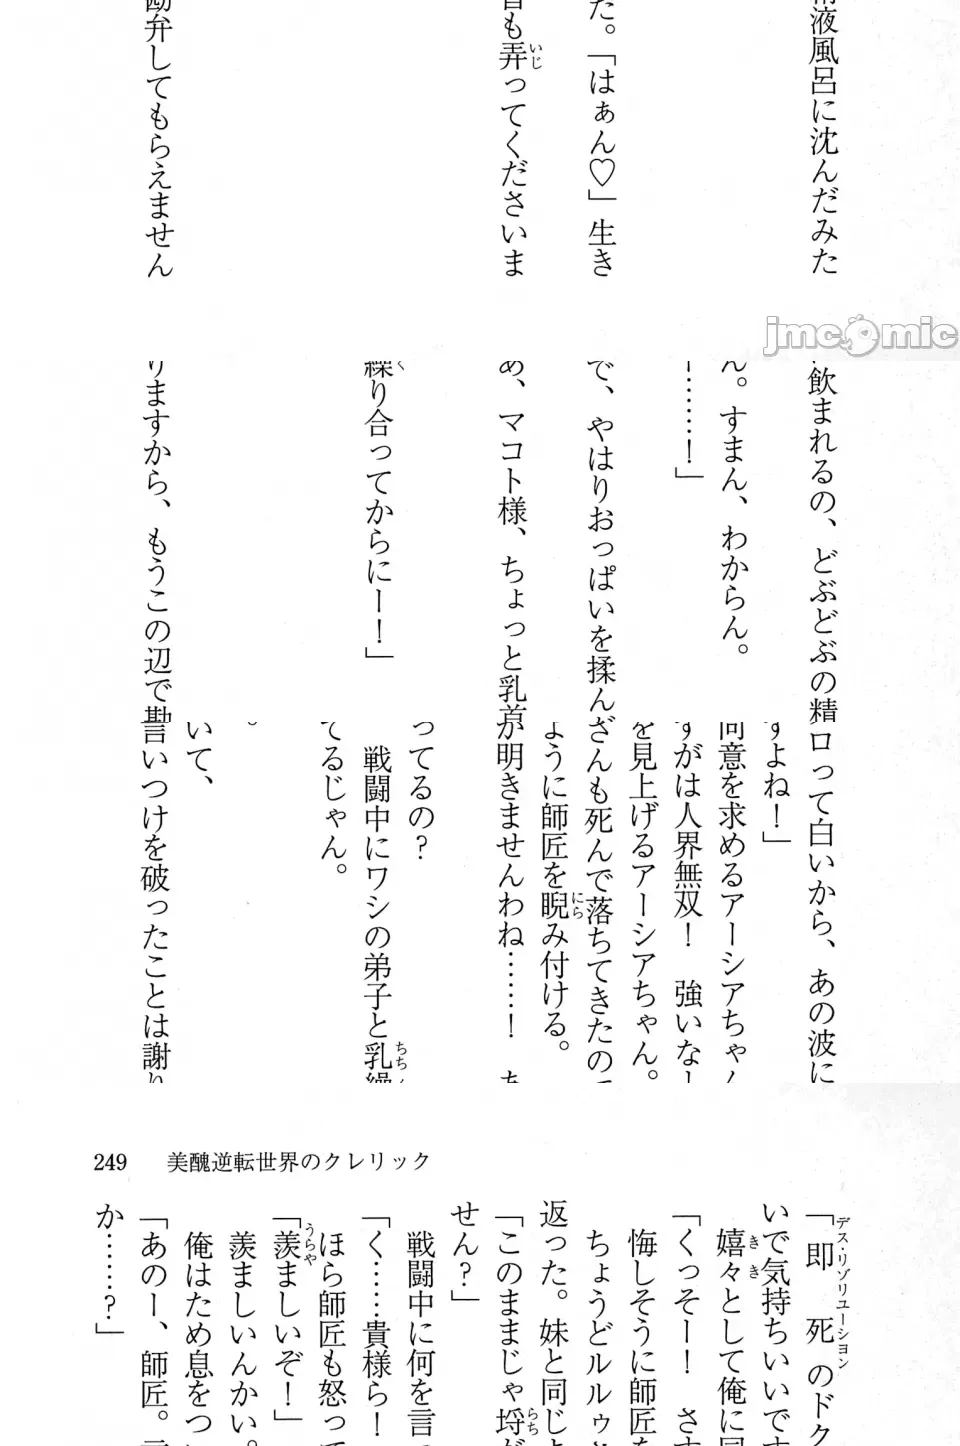 液風呂に沈んだみた
た。「はぁん♡」生き
も弄ってくださいま
弁してもらえません
jmcomic
飲まれるの、どぶどぶの精
ん。すまん、わからん。
ー……！」
で、やはりおっぱいを揉ん
あ、マコト様、ちょっと乳首
繰り合ってからにー！」
りますから、もうこの辺で勘
ロって白いから、あの波に
すよね！」
同意を求めるアーシアちゃん
すがは人界無双！　強いなー
を見上げるアーシアちゃん。
ざんも死んで落ちてきたので
ように師匠を睨み付ける。
が明きませんわね……！　あ
ってるの？
戦闘中にワシの弟子と乳繰
てるじゃん。
。
いて、
言いつけを破ったことは謝り
249　美醜逆転世界のクレリック
「即死のドク
いで気持ちいいです
嬉々として俺に同
「くっそー！　さす
悔しそうに師匠を
ちょうどルルゥと
返った。妹と同じよ
「このままじゃ埒が
せん？」
戦闘中に何を言っ
「く……貴様ら！
ほら師匠も怒って
「羨ましいぞ！」
羨ましいんかい。
俺はため息をつい
「あのー、師匠。言
か……？」